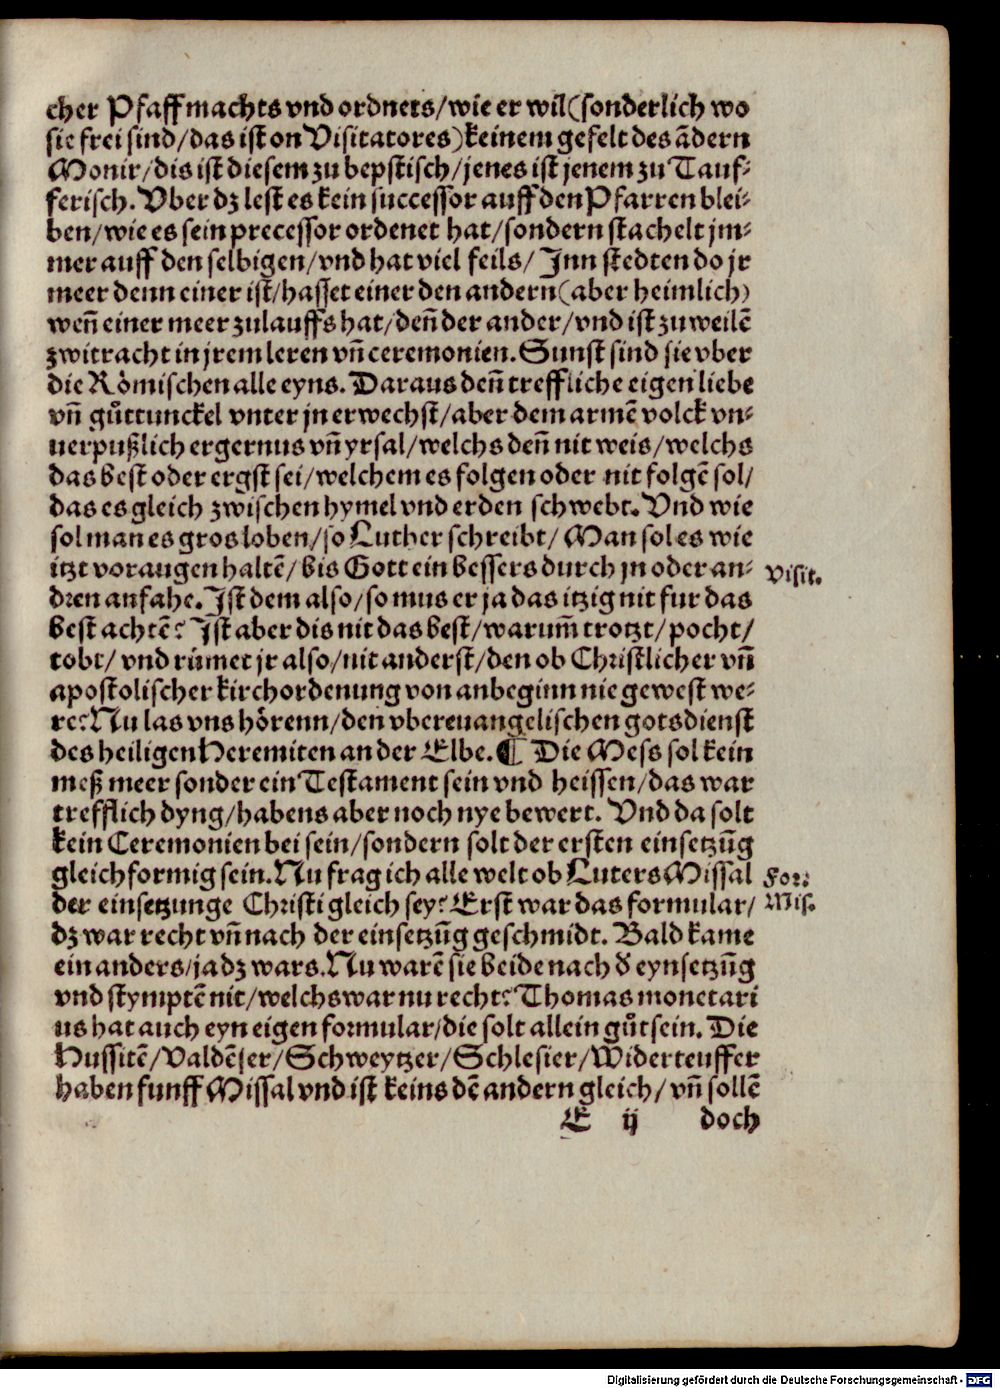 cher Pfaff machts vnd ordnets/wie er wil(sonderlich wo
sie frei sind/das ist on Visitatores)keinem gefelt des ādern
Monir/dis ist diesem zu bepstisch/jenes ist jenem zu Tauf-
ferisch. Vber dz lest es kein successor auff den Pfarren blei-
ben/wie es sein precessor ordenet hat/sondern stachelt jm-
mer auff den selbigen/vnd hat viel feils/ Jnn stedten do jr
meer denn einer ist/hasset einer den andern(aber heimlich)
weñ einer meer zulauffs hat/deñ der ander/vnd ist zuweilē
zwitracht in jrem leren vñ ceremonien. Sunst sind sie vber
die Rômischen alle eyns. Daraus deñ treffliche eigen liebe
vñ gůttunckel vnter jn erwechst/aber dem armē volck vn-
uerpußlich ergernus vñ yrsal/welchs deñ nit weis/welchs
das best oder ergst sei/welchem es folgen oder nit folgē sol/
das es gleich zwischen hymel vnd erden schwebt. Vnd wie
sol man es gros loben/so Luther schreibt/ Man sol es wie
itzt vor augen haltē/ bis Gott ein bessers durch jn oder an-
dren anfahe. Jst dem also/so mus er ja das itzig nit fur das
best achtē? Jst aber dis nit das best/warum̄ trotzt/pocht/
tobt/ vnd růmet jr also/nit anderst/den ob Christlicher vñ
apostolischer kirchordenung von anbeginn nie gewest we-
re? Nu las vns hôrenn/den vbereuangelischen gotsdienst
des heiligen Heremiten an der Elbe. ¶ Die Mess sol kein
meß meer sonder ein Testament sein vnd heissen/das war
trefflich dyng/habens aber noch nye bewert. Vnd da solt
kein Ceremonien bei sein/sondern solt der ersten einsetzūg
gleichformig sein. Nu frag ich alle welt ob Luters Missal
der einsetzunge Christi gleich sey? Erst war das formular/
dz war recht vñ nach der einsetzūg geschmidt. Bald kame
ein anders/ja dz wars. Nu warē sie beide nach d̕ eynsetzūg
vnd stymptē nit/welchs war nu recht? Thomas monetari
us hat auch eyn eigen formular/die solt allein gůt sein. Die
Hussitē/Valdēser/Schweytzer/Schlesier/Widerteuffer
haben funff Missal vnd ist keins dē andern gleich/ vñ sollē
E ij doch
Visit.
For:
Mis.
Digitalisierung gefördert durch die Deutsche Forschungsgemeinschaft - DFG